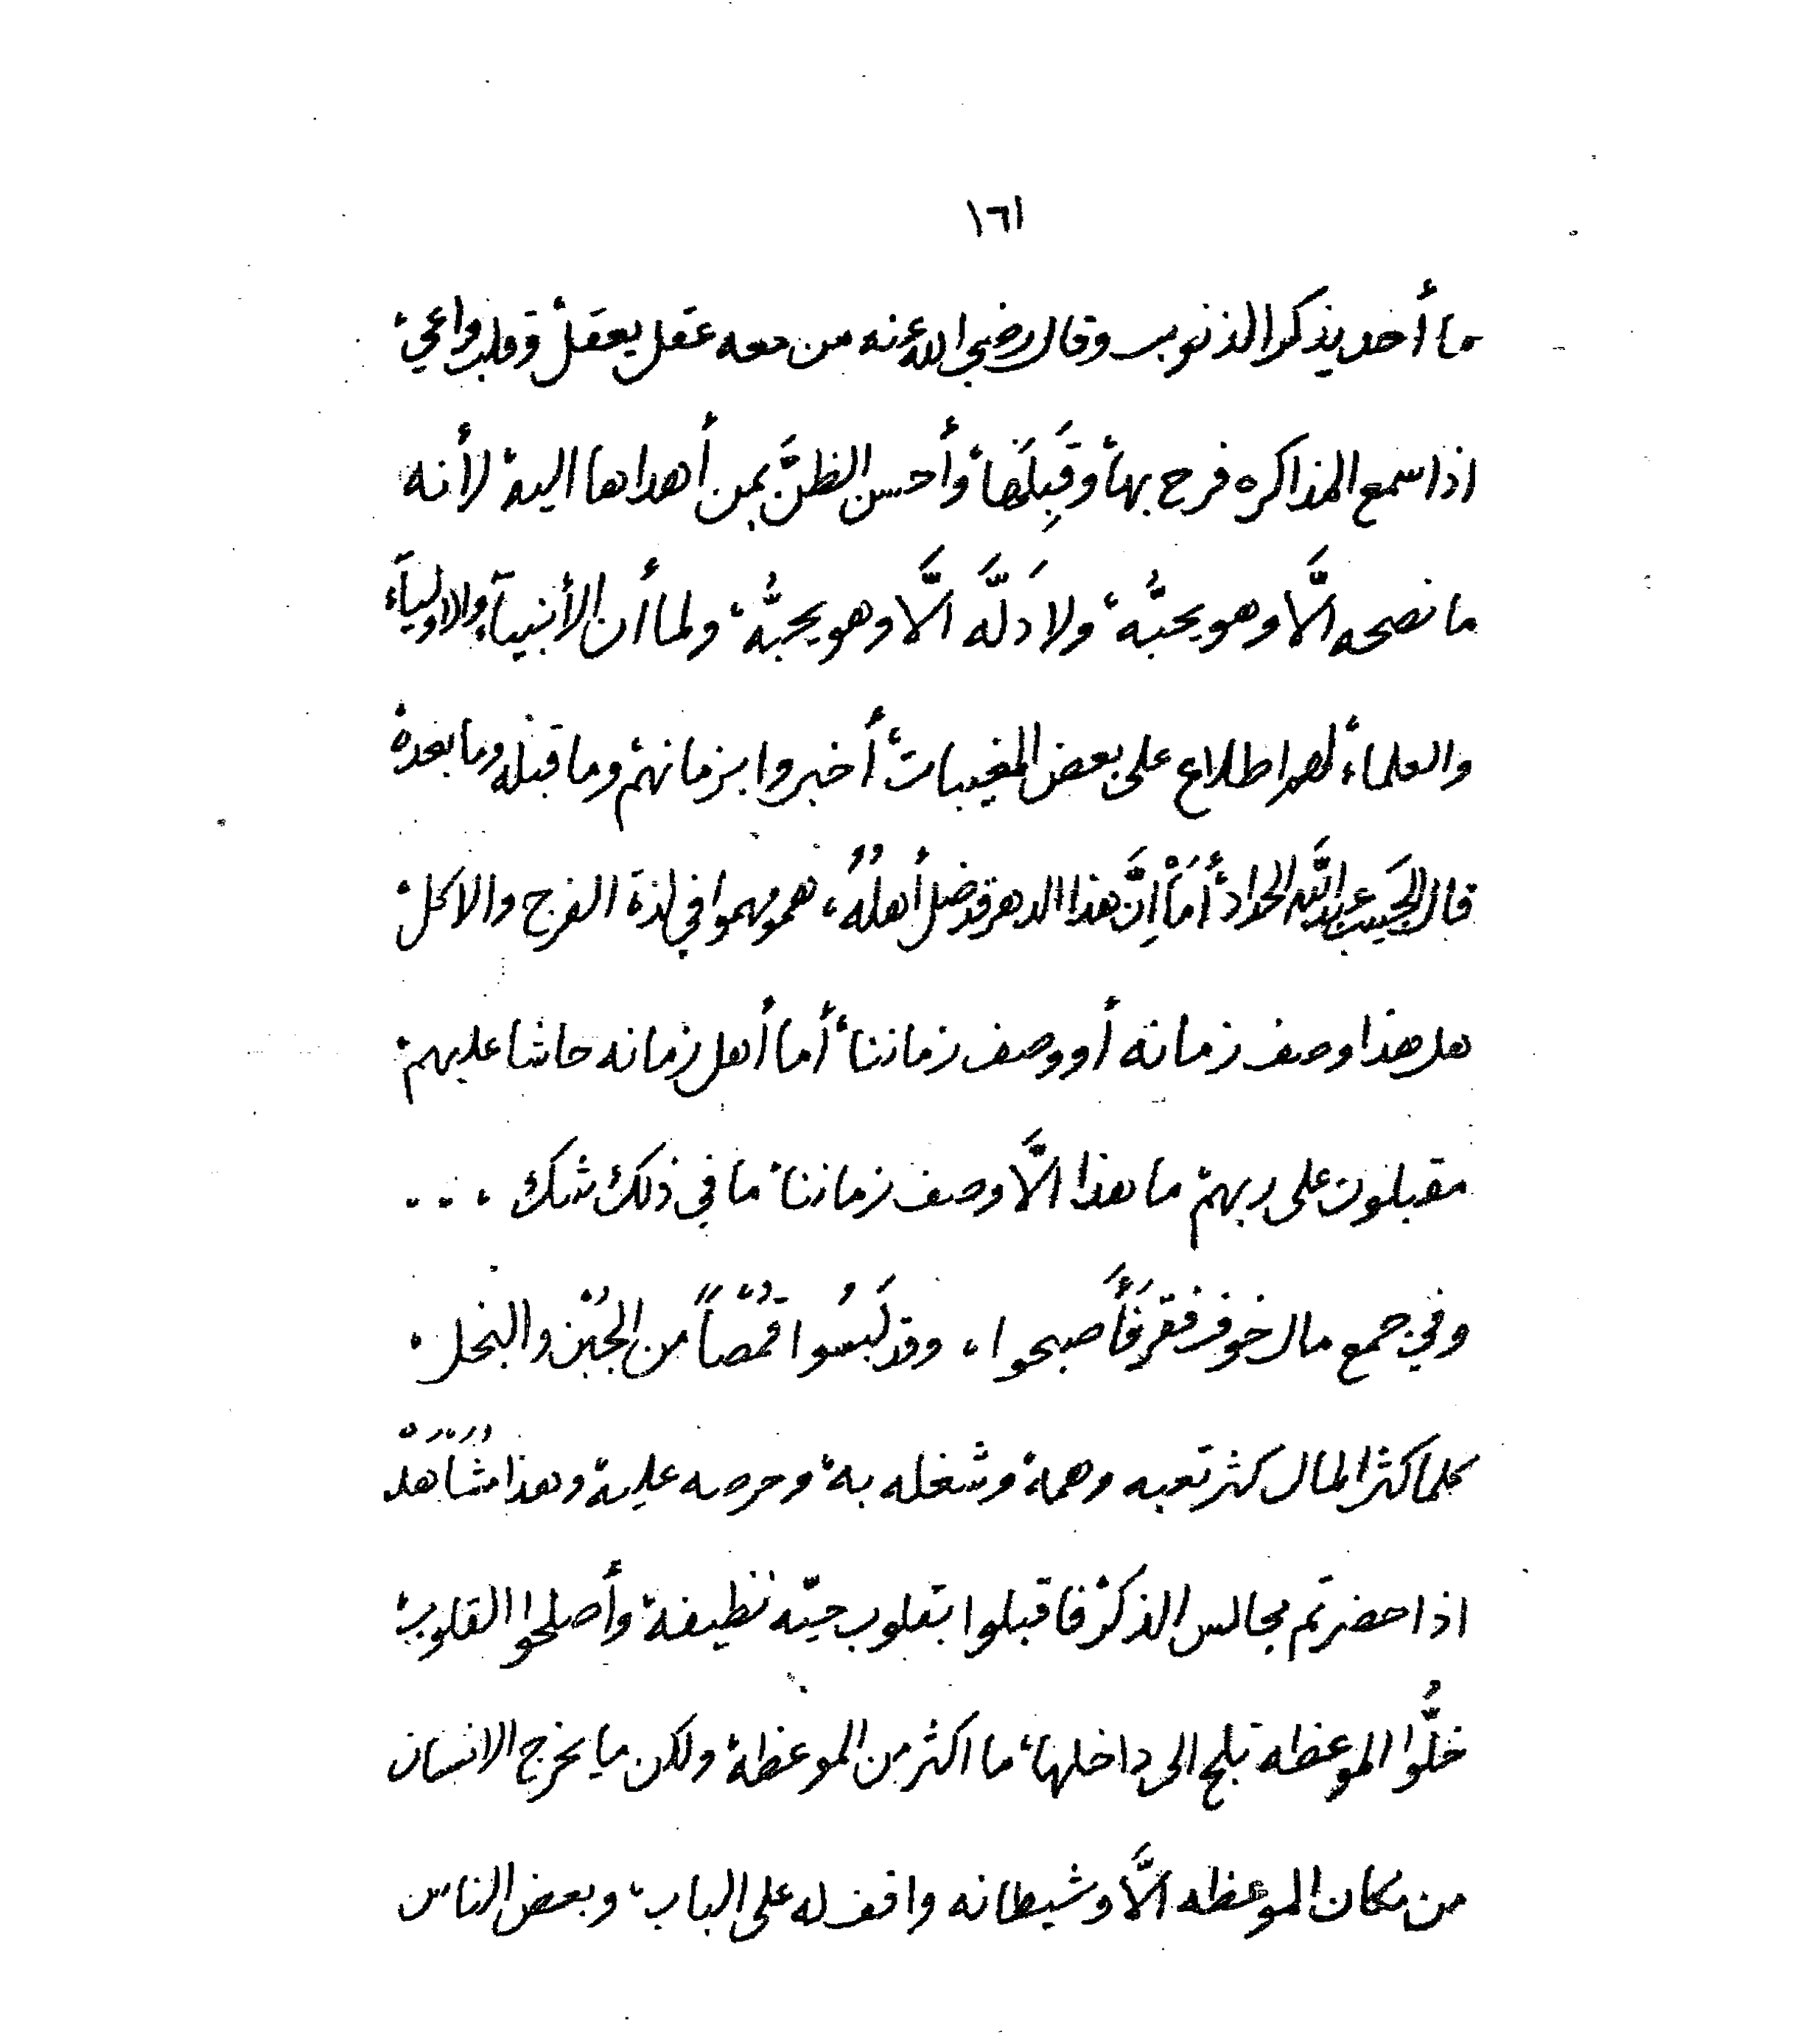 ١٦١
ما أحد يذكر الذنوب وقال رضي الله عنه من معه عقل يعقلْ وقلب واعيْ
اذا سمع المذاكره فرح بهاْ وقَبِلَهَاْ وأحسن الظنَّ بمن أهداها اليهْ لأنه
ما نصحه الَّا وهو يحبُّهْ ولا دَلَّه الَّا وهو يحبُّهْ ولما أن الأنبيآء والاوليآء
والعلماءْ لهم اطلاع على بعض المغيباتْ أخبروا بزمانهمْ وما قبله وما بعدهْ
قال الحَبيب عبد الله الحدادْ أمَاْ اِنَّ هذا الدهر قد ضل أهلُهُ ، همومهموا في لذة الفرج والاكلْ
هل هذا وصف زمانه أو وصف زمانناْ أما أهل زمانه حاشا عليهمْ
مقبلون على ربهمْ ما هذا الَّا وصف زمانناْ ما في ذلك شك . . .
وفي جمع مال خوف فقر فَأَصبحوا ، وقد لَبَسُوا قُمُصَاً من الجُبْن والبخل .
كلما كثر المال كثر تعبه وهمهْ وشغله بهْ وحرصه عليهْ وهذا مُشَاهَدْ
اذا حضرتم مجالس الذكرْ فاقبلوا بقلوب حيّه نظيفهْ وأصلحوا القلوبْ
خلُّوا الموعظه تلج الى داخلهاْ ما اكثر من الموعظهْ ولكن ما يخرج الانسان
من مكان الموعظه الَّا وشيطانه واقف له على البابْ وبعض الناس